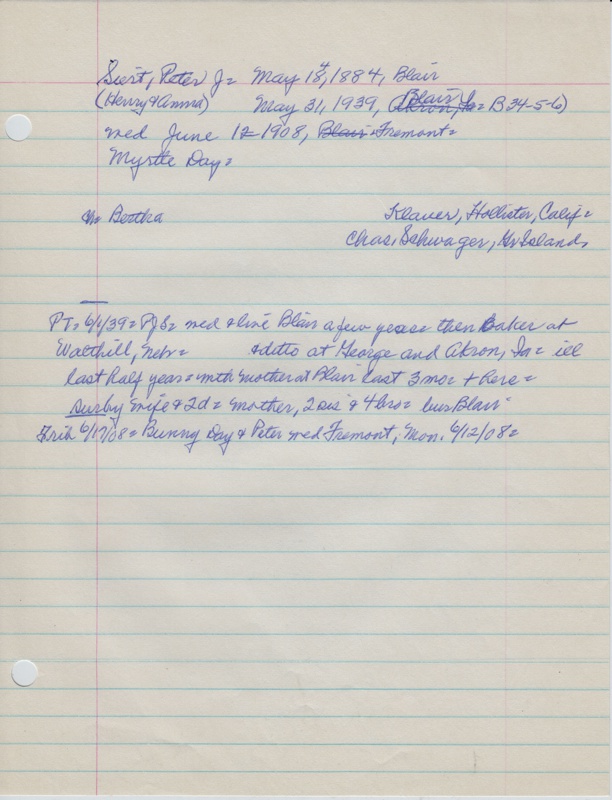 Siert, Peter J= May 14, 1884, Blair
(Henry & Anna) May 31, 1939, Akron, Ia= Blair B 34-5-6)
med June 12 1908, Blair Fremont=
Myrtle Day=
m Bertha Klauer, Hollister, Calif=
Chas. Schwager, Gr Island,
PT= 6/1/39= PJS= med & live Blair a few years= then Baker at
Walthill, Nebr= & ditto at George and Akron, Ia= ill
last half year= with mother at Blair last 3 mos + here=
surby wife & 2d= mother, 2 sis & 4 bro= bur Blair=
Trib 6/17/08= Bunny Day & Peter med Fremont, Mon. 6/12/08=